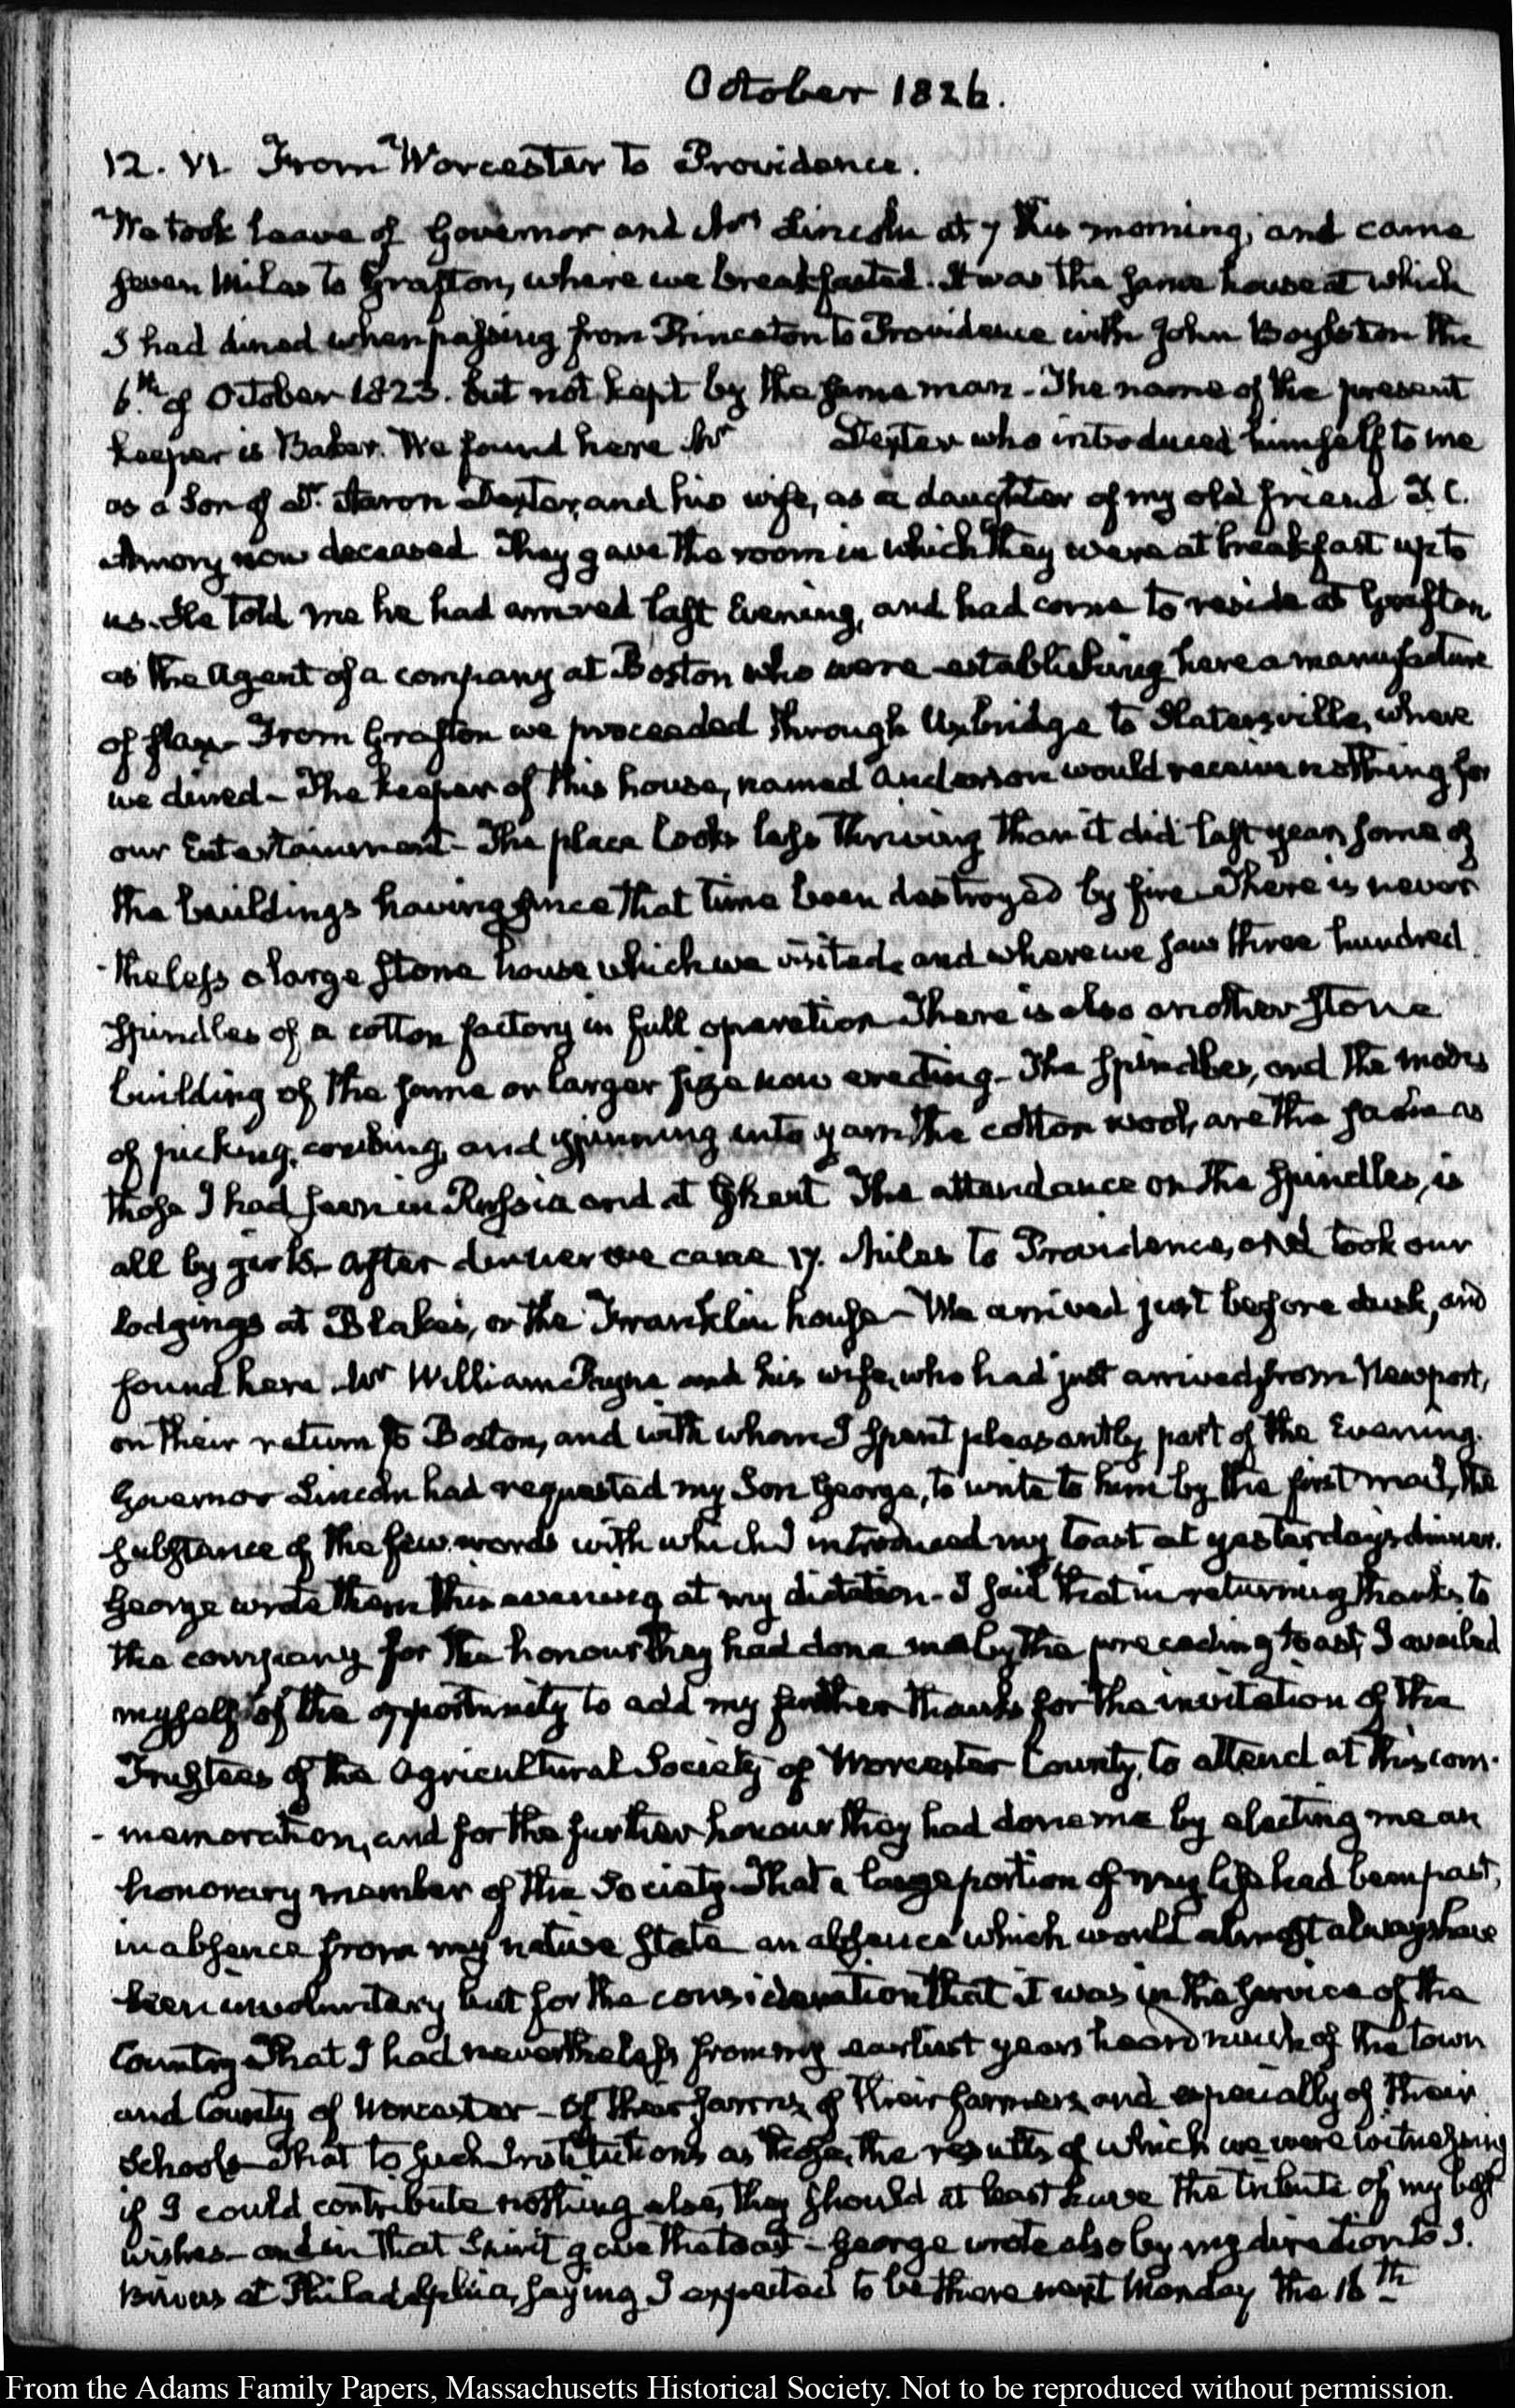 October 1826.
12. VI. From Worcester to Providence.
We took leave of Governor and Mrs Lincoln at 7 this morning, and came
seven Miles to Grafton, where we breakfasted. It was the same house at which
I had dined when passing from Princeton to Providence with John Boylston the
6.th of October 1823. but not kept by the same man. The name of the present
keeper is Baker. We found here Mr Dexter who introduced himself to me
as a Son of Dr. Aaron Dexter, and his wife, as a daughter of my old friend J. C.
Amory now deceased. They gave the room in which they were at breakfast up to
us. He told me he had arrived last Evening, and had come to reside at Grafton,
as the Agent of a company at Boston who were establishing here a manufacture
of flax. From Grafton we proceeded through Uxbridge to Slatersville, where
we dined – The keeper of this house, named Anderson would receive nothing for
our Entertainment – The place looks less thriving than it did last year, some of
the buildings having since that time been destroyed by fire. There is never
-theless a large stone house which we visited, and where we saw three hundred
Spindles of a cotton factory in full operation. There is also another stone
building of the same or larger size now erecting – The Spindles, and the modes
of picking, combing, and spinning into yarn the cotton wool, are the same as
those I had seen in Russia and at Ghent. The attendance on the Spindles, is
all by girls. After dinner we came 17. Miles to Providence, and took our
lodgings at Blake's, or the Franklin house – We arrived just before dusk, and
found here Mr William Payne and his wife, who had just arrived from Newport,
on their return to Boston, and with whom I spent pleasantly part of the Evening.
Governor Lincoln had requested my Son George, to write to him by the first mail, the
substance of the few words with which I introduced my toast at yesterday's dinner.
George wrote them this evening at my dictation. I said that in returning thanks to
the company for the honour they had done me by the preceding toast, I availed
myself of the opportunity to add my further thanks for the invitation of the
Trustees of the Agricultural Society of Worcester County, to attend at this com-
-memoration, and for the further honour they had done me by electing me an
honorary member of the Society. That a large portion of my life had been past,
in absence from my native State an absence which would almost always have
been involuntary but for the consideration that it was in the service of the
Country. That I had nevertheless from my earliest years heard much of the town
and County of Worcester – Of their farms, of their farmers, and especially of their
Schools. That to such Institutions as these, the results of which we were witnessing
if I could contribute nothing else, they should at least have the tribute of my best
wishes – and in that Spirit gave the toast – George wrote also by my direction to J.
at Philadelphia, saying I expected to be there next Monday the 16th
From the Adams Family Papers, Massachusetts Historical Society. Not to be reproduced without permission.